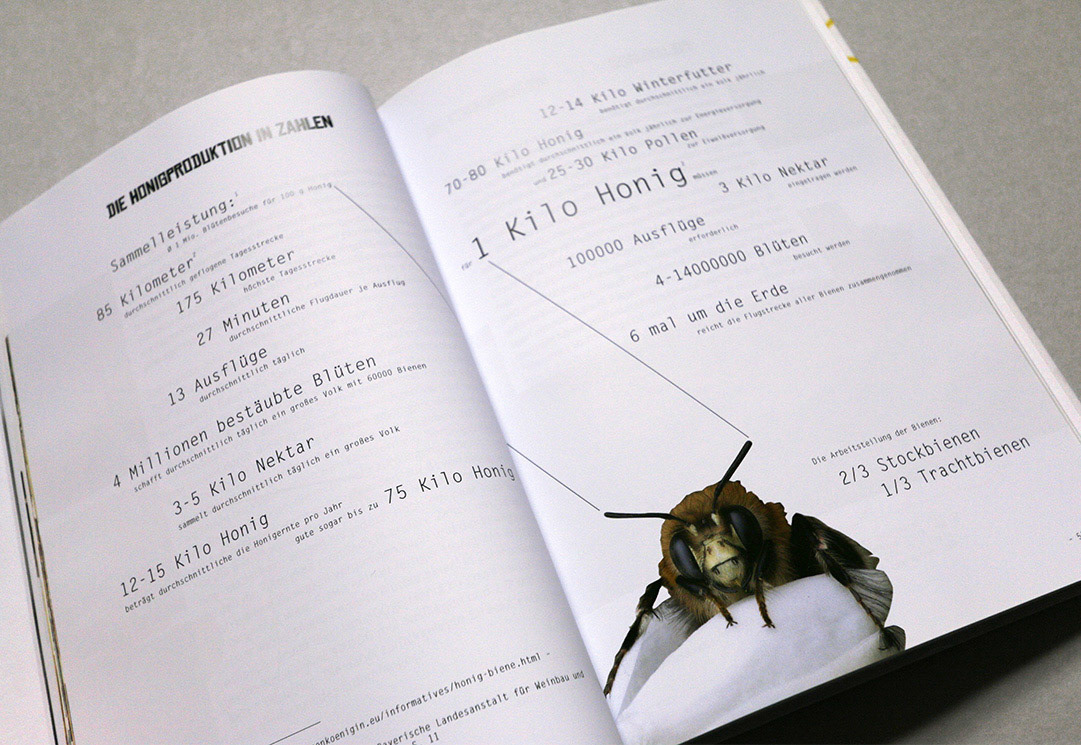 DIE HONIGPRODUKTION IN ZAHLEN
Sammelleistung:¹
ø 1 Mio. Blütenbesuche für 100 g Honig
85 Kilometer²
durchschnittlich geflogene Tagesstrecke
175 Kilometer
höchste Tagesstrecke
27 Minuten
durchschnittliche Flugdauer je Ausflug
13 Ausflüge
durchschnittlich täglich
4 Millionen bestäubte Blüten
schafft durchschnittlich täglich ein großes Volk mit 60000 Bienen
3-5 Kilo Nektar
sammelt durchschnittlich täglich ein großes Volk
12-15 Kilo Honig
beträgt durchschnittliche die Honigernte pro Jahr
gute sogar bis zu 75 Kilo Honig
onkoenigin.eu/informatives/honig-biene.html -
ayerische Landesanstalt für Weinbau und
S. 11
12-14 Kilo Winterfutter
benötigt durchschnittlich ein Volk jährlich
70-80 Kilo Honig
benötigt durchschnittlich ein Volk jährlich zur Energieversorgung
und 25-30 Kilo Pollen
zur Eiweißversorgung
für 1 Kilo Honig¹ müssen
3 Kilo Nektar
eingetragen werden
100000 Ausflüge
erforderlich
4-14000000 Blüten
besucht werden
6 mal um die Erde
reicht die Flugstrecke aller Bienen zusammengenommen
Die Arbeitsteilung der Bienen:
2/3 Stockbienen
1/3 Trachtbienen